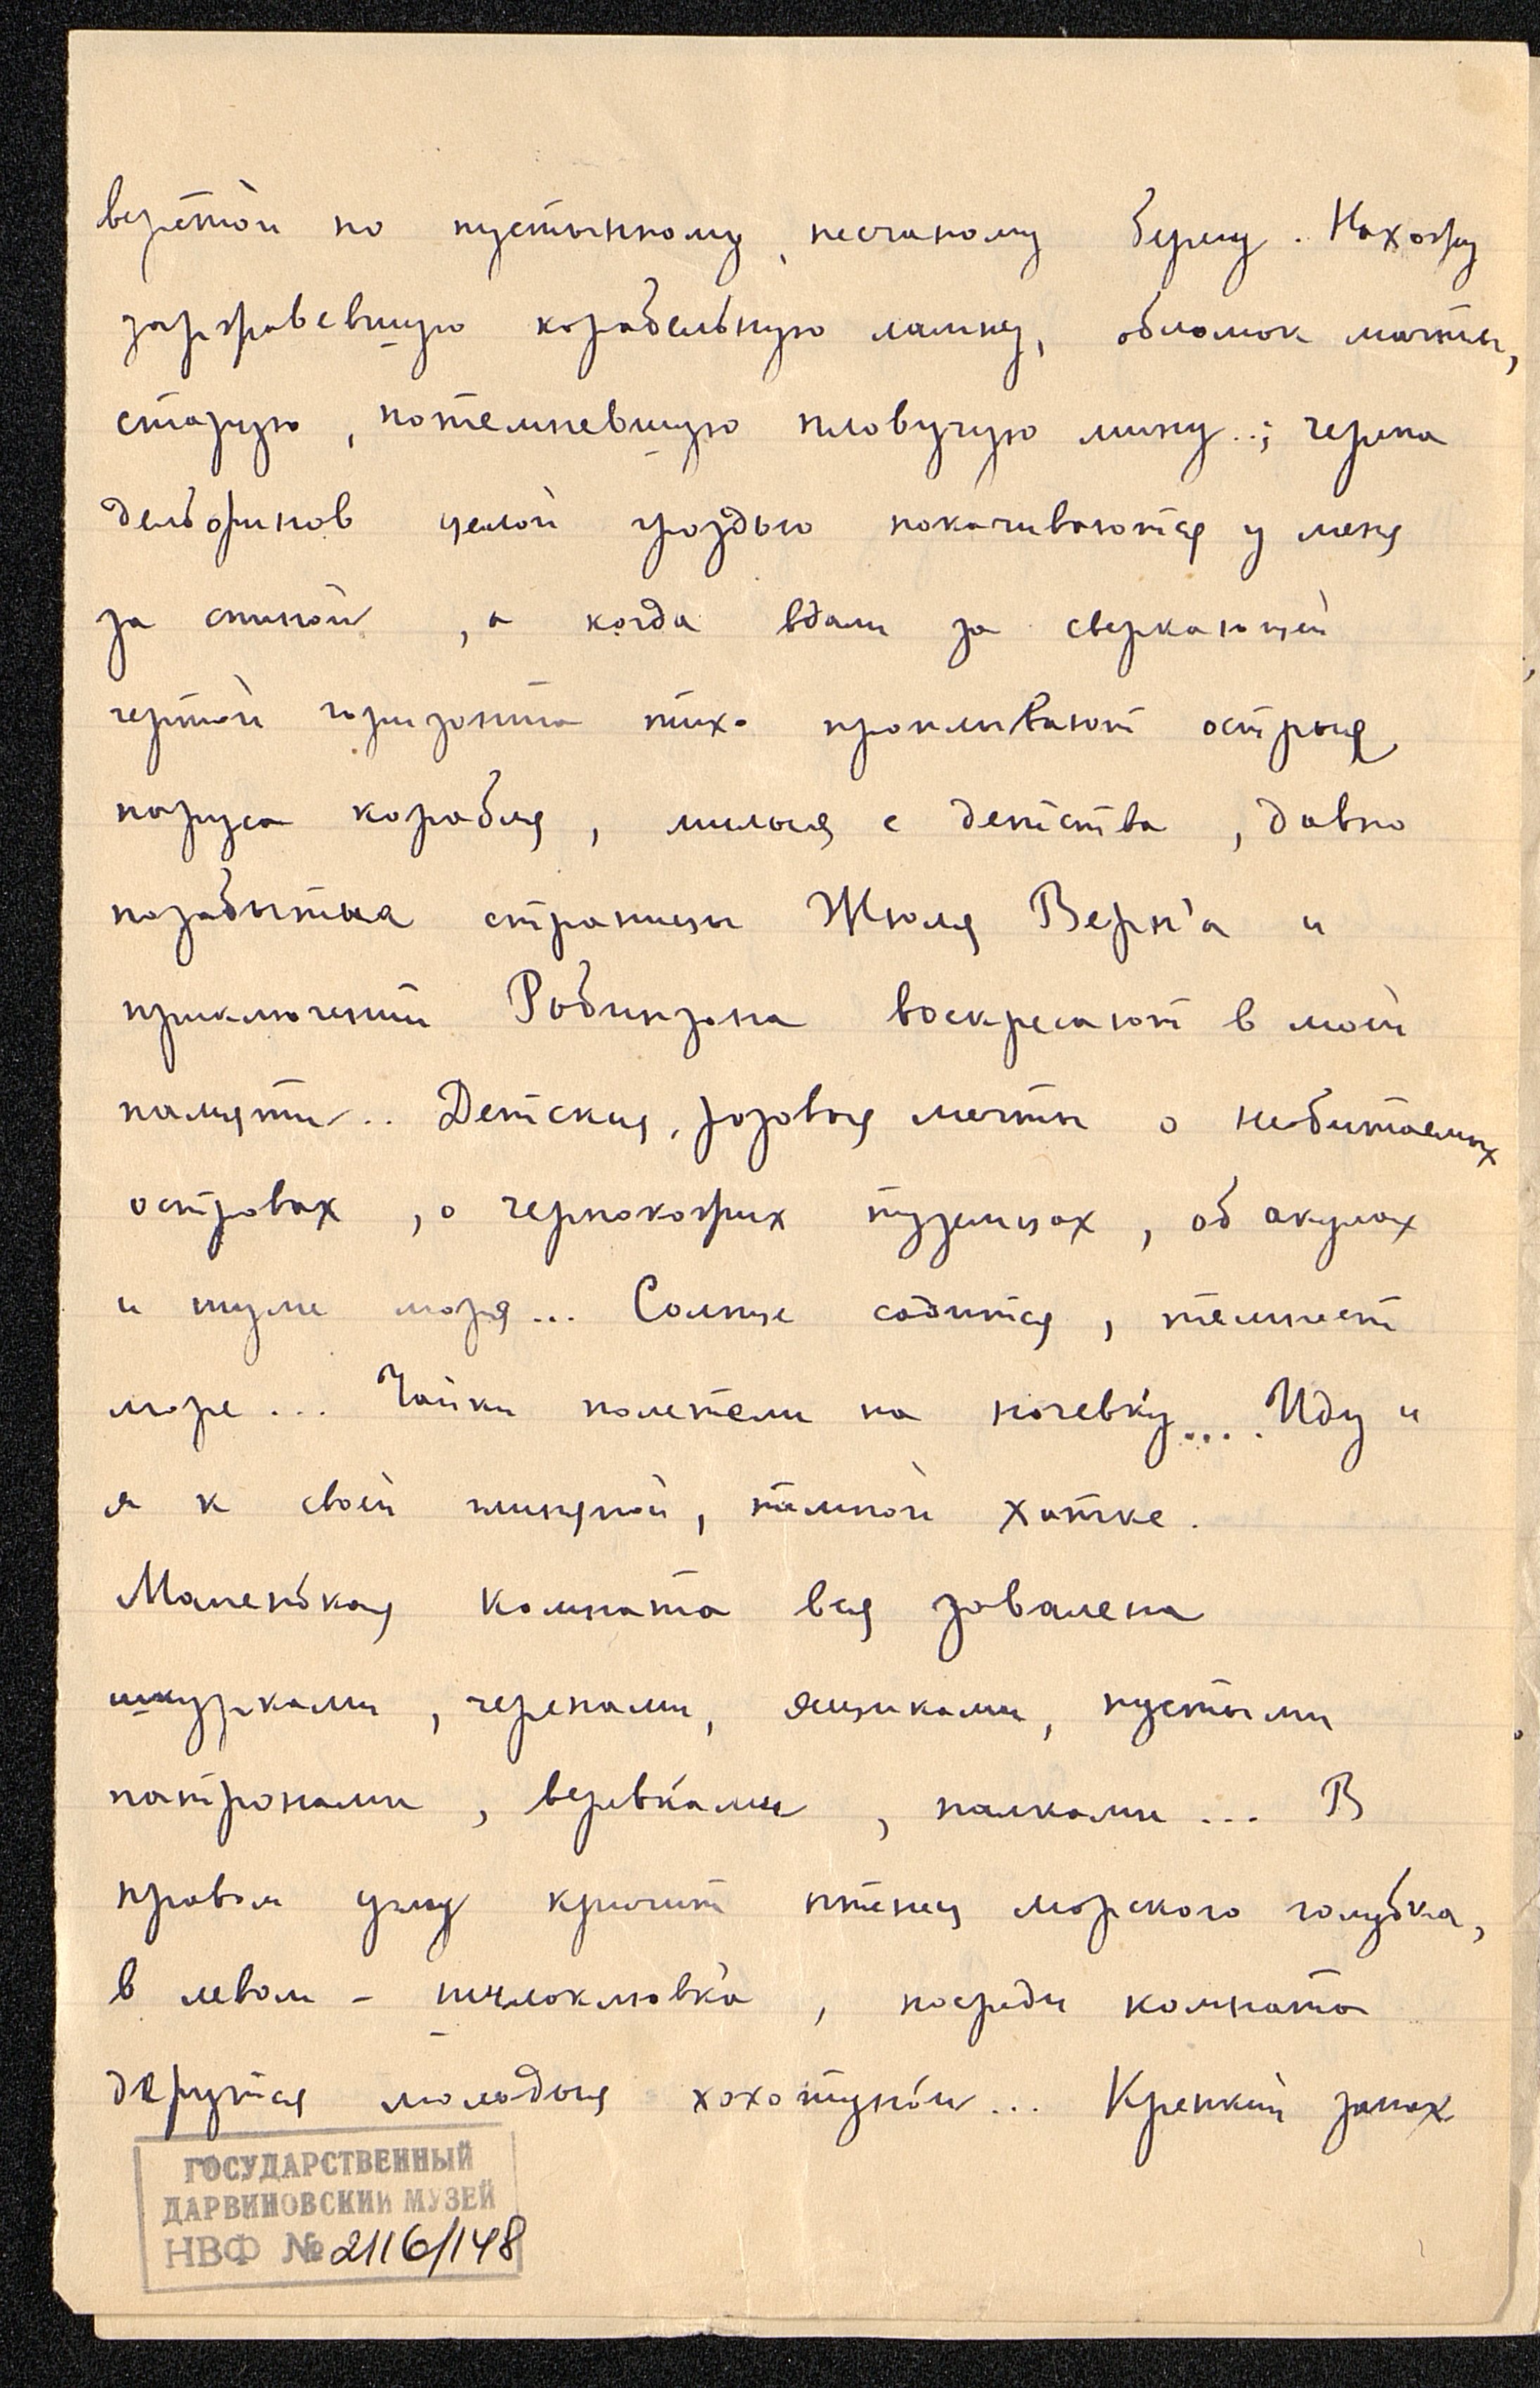 верстой по пустынному, песчаному берегу. Нахожу
заржавевшую корабельную лампу, обломок мачты,
старую, потемневшую пловучую мину..; черепа
дельфинов целой гроздью покачиваются у меня
за спиной, а когда вдали за сверкающей
чертой горизонта тихо проплывают острыя
паруса корабля, милыя с детства, давно
позабытыя страницы Жюля Верн'а и
приключений Робинзона воскресают в моей
памяти.. Детския, розовыя мечты о необитаемых
островах, о чернокожих туземцах, об акулах
и шуме моря... Солнце садится, темнеет
море... Чайки полетели на ночевку.... Иду и
я к своей глиняной, темной хатке.
Маленькая комната вся завалена
шкурками, черепами, ящиками, пустыми
патронами, веревками, палками... В
правом углу кричит птенец морского голубка,
в левом - шилоклювка, посреди комнаты
дерутся молодыя хохотуньи... Крепкий запах
ГОСУДАРСТВЕННЫЙ
ДАРВИНОВСКИЙ МУЗЕЙ
НВФ № 2116/148